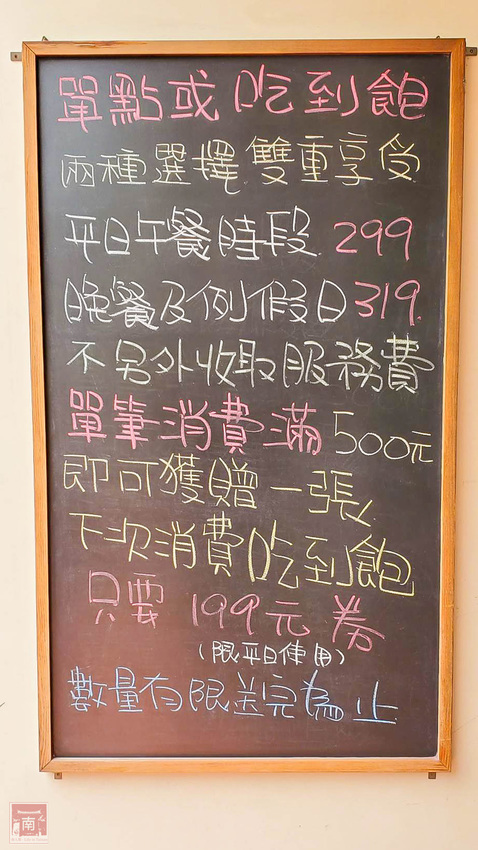 單點或吃到飽
兩種選擇雙重享受
平日午餐時段 299
晚餐及例假日319
不另外收取服務費
單筆消費滿500元
即可獲贈一張
下次消費吃到飽
只要 199元券
(限平日使用)
數量有限送完為止
南